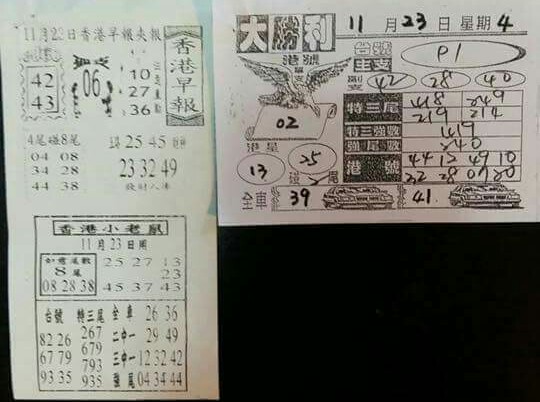 11月23日香港早報夾報
香港早報
42
43
06
10
27
36
4尾碰8尾
04 08
34 28
44 38
25 45
23 32 49
發財八准
香港小老鼠
11月23日周
如意尾數
8尾
08 28 38
25 27 13
23
45 37 43
台號 特三尾 全車 26 36
82 26 267 二中一 29 49
67 79 679 三中一 12 32 42
93 35 793
935 強尾 04 34 44
大勝利
11月23日星期4
港號
台號
主支
P1
副支
42 28 40
02
特三尾
418 249
219 214
特三強數
419
強尾數
240
港號
4412 4910
22 28 0680
港星
13
25
尾
全車
39
41